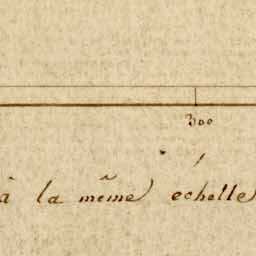 300
à la même échelle